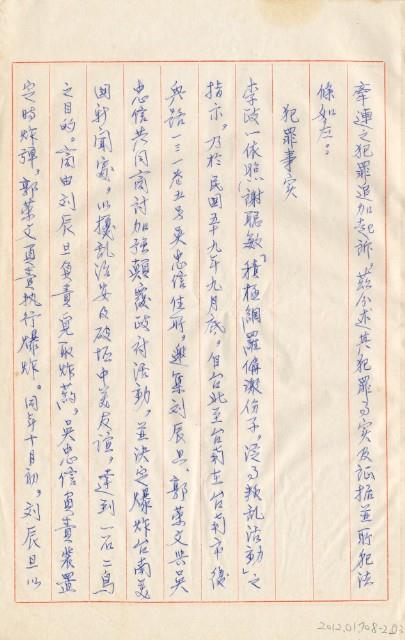 牽連之犯罪追加起訴。茲分述其犯罪事实及証据並所犯法
條如左：
犯罪事实
李政一依照「謝聪敏」積極網羅偏激份子，從事叛乱活動」之
指示，乃於民囯五十九年九月底，自台北至台南在台南市後
興路一三一巷五号吳忠信住所，邀集刘辰旦、郭荣文共吳
忠信共同商討加强顛覆政府活動，並决定爆炸台南美
囯新聞處，以擾乱治安及破坏中美友誼，達到一石二鳥
之目的。商由刘辰旦負責覓取炸葯，吳忠信負責裝置
定時炸弹，郭荣文負責执行爆炸。同年十月初，刘辰旦以
2012.01708-2 03